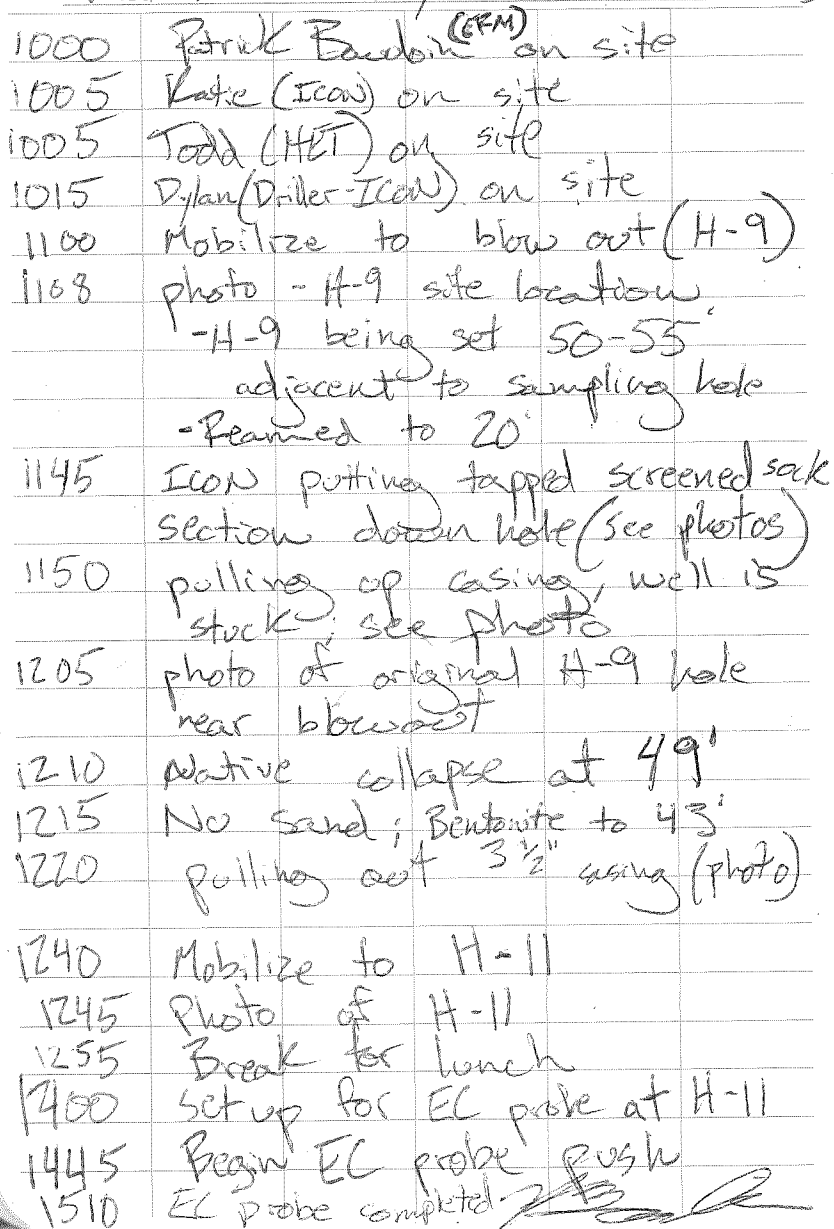 (EFM)
1000 Patrick Baudoin on site
1005 Katie (ICON) on site
1005 Todd (HET) on site
1015 Dylan (Driller-ICON) on site
1100 Mobilize to blow out (H-9)
1108 photo - H-9 site location
-H-9 being set 50-55'
adjacent to sampling hole
-Reamed to 20'
1145 ICON putting tapped screened sock
section down hole (see photos)
1150 pulling up casing, well is
stuck; see photo
1205 photo of original H-9 hole
near blowout
1210 Native collapse at 49'
1215 No sand; Bentonite to 43'
1220 pulling out 3½" casing (photo)
1240 Mobilize to H-11
1245 Photo of H-11
1255 Break for lunch
1400 set up for EC probe at H-11
1445 Begin EC probe push
1510 EC probe completed